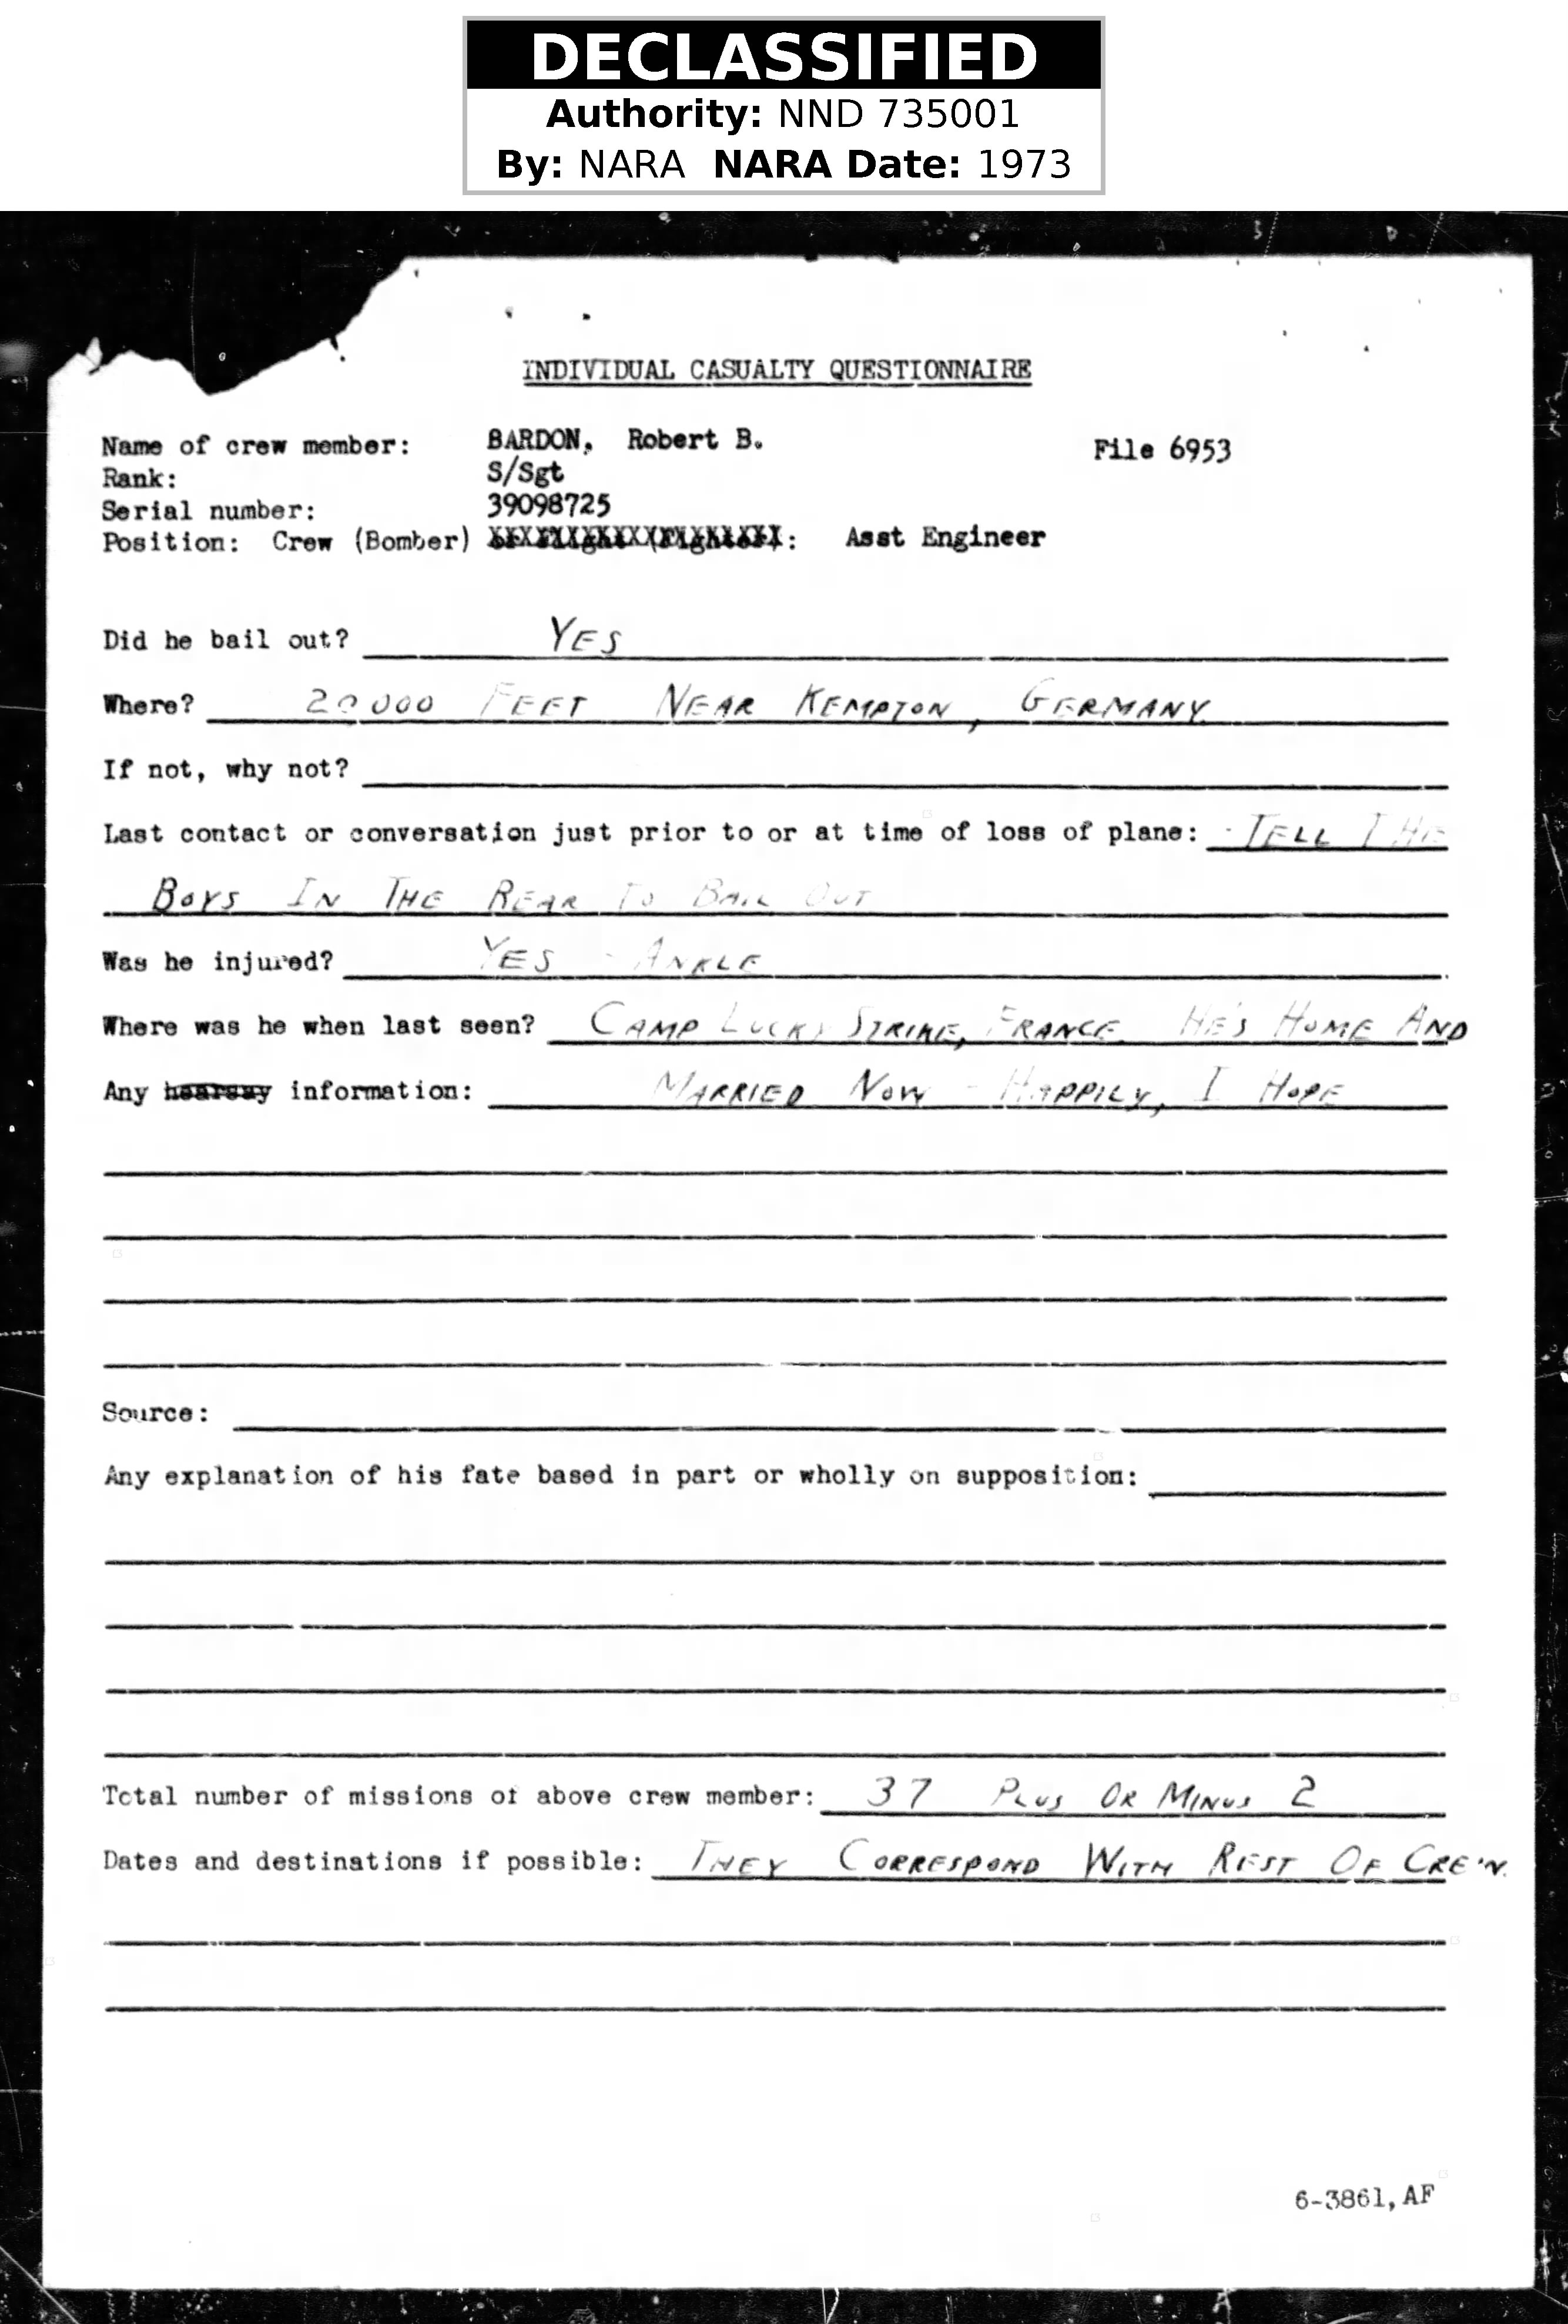 DECLASSIFIED
Authority: NND 735001
By: NARA NARA Date: 1973
INDIVIDUAL CASUALTY QUESTIONNAIRE
Name of crew member: BARDON, Robert B. File 6953
Rank: S/Sgt
Serial number: 39098725
Position: Crew (Bomber) or Flight (Fighter): Asst Engineer
Did he bail out? YES
Where? 20000 FEET NEAR KEMPTON, GERMANY
If not, why not?
Last contact or conversation just prior to or at time of loss of plane: - TELL THE
BOYS IN THE REAR TO BAIL OUT
Was he injured? YES - ANKLE
Where was he when last seen? CAMP LUCKY STRIKE, FRANCE. HE'S HOME AND
Any hearsay information: MARRIED NOW - HAPPILY, I HOPE
Source:
Any explanation of his fate based in part or wholly on supposition:
Total number of missions of above crew member: 37 PLUS OR MINUS 2
Dates and destinations if possible: THEY CORRESPOND WITH REST OF CREW.
6-3861, AF